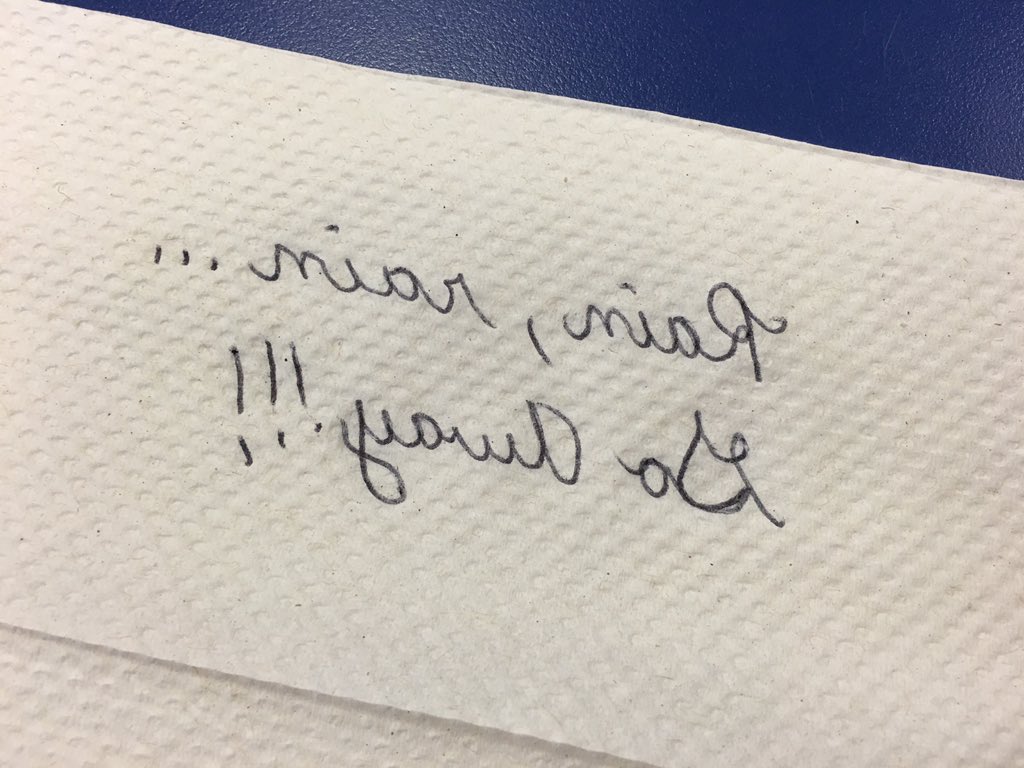 Rain, rain ...
Go Away!!!